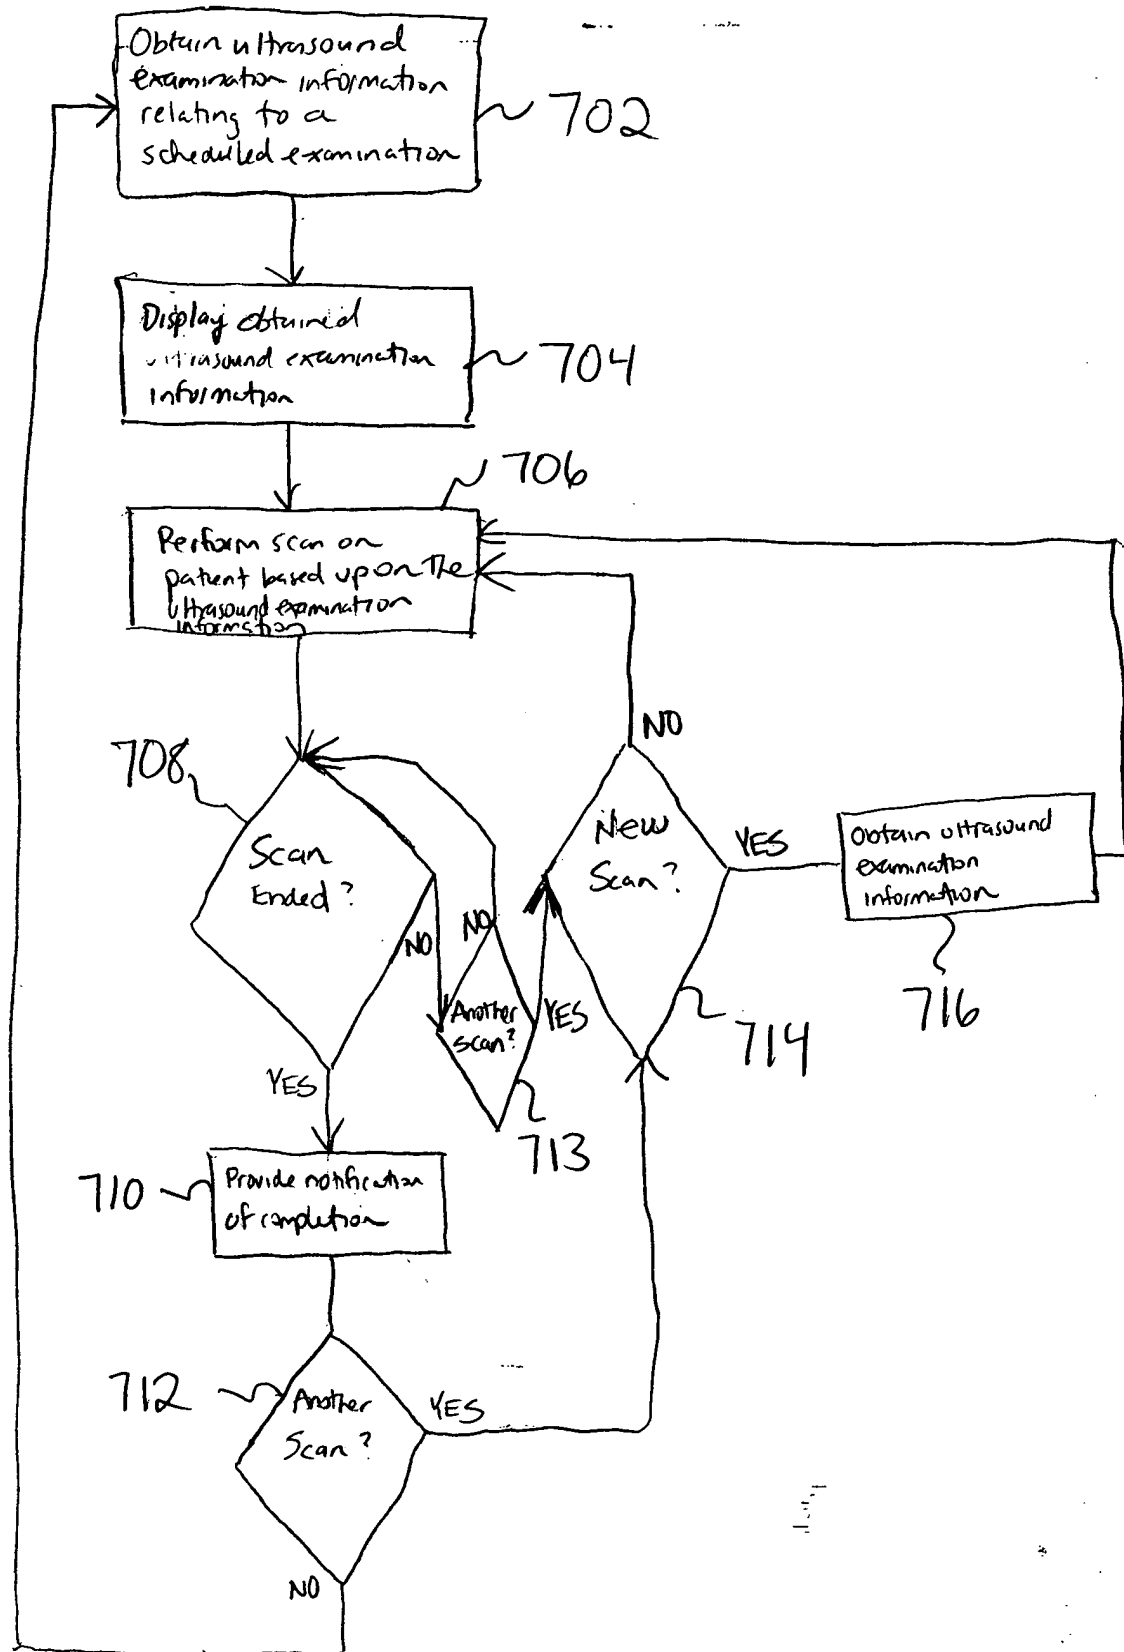 Obtain ultrasound
examination information
relating to a
scheduled examination
702
Display obtained
ultrasound examination
information
704
706
Perform scan on
patient based upon the
ultrasound examination
information
708
Scan
Ended?
NO
YES
NO
Another
scan?
YES
713
NO
New
Scan?
YES
714
Obtain ultrasound
examination
information
716
710
Provide notification
of completion
712
Another
Scan?
YES
NO